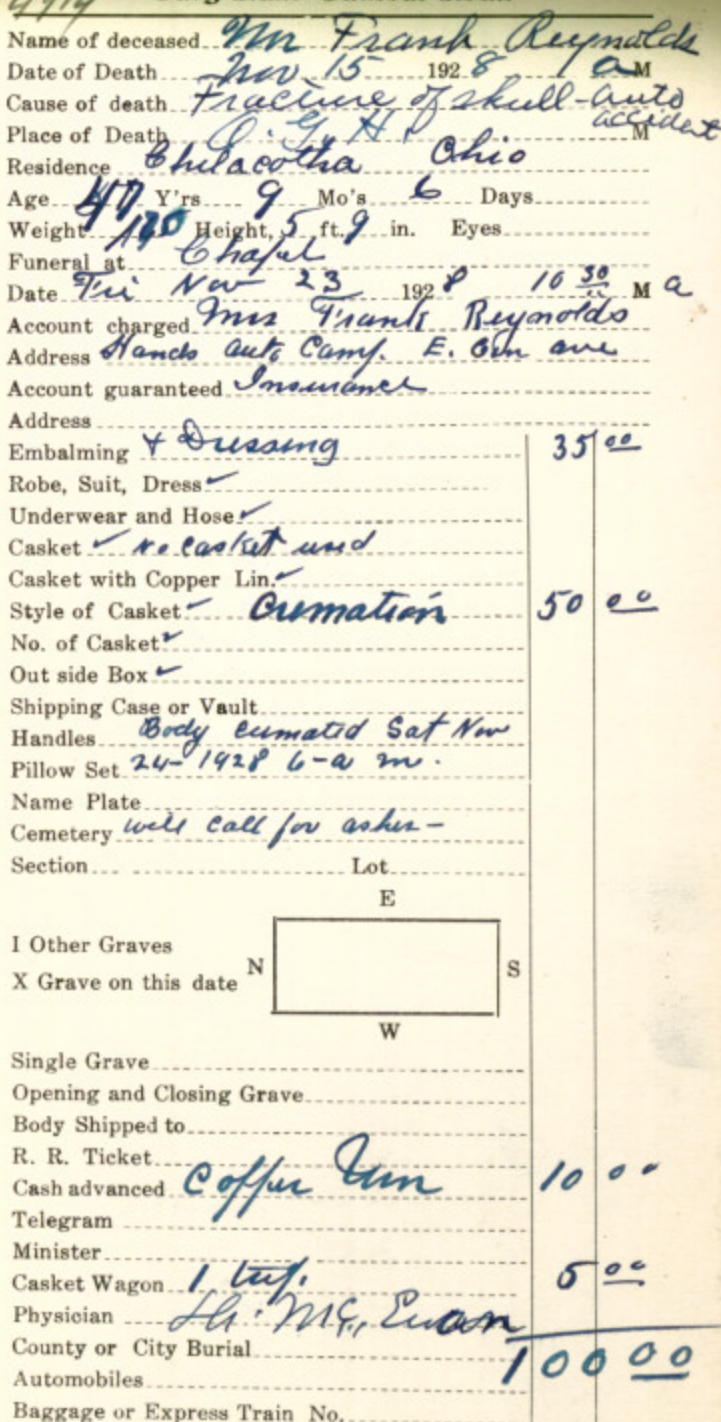 Name of deceased Mr Frank Reynolds
Date of Death Nov. 15 1928 1 a M
Cause of death Fracture of skull - auto accident
Place of Death O. G. H. M
Residence Chilacotha Ohio
Age 47 Y'rs 9 Mo's 6 Days
Weight Height, 5 ft. 9 in. Eyes
Funeral at Chapel
Date Fri Nov 23 1928 10 30 M a
Account charged Mrs Frank Reynolds
Address Hands Auto Camp. E. ave
Account guaranteed Insurance
Address
Embalming + Dressing 35 00
Robe, Suit, Dress ✓
Underwear and Hose ✓
Casket ✓ No casket used
Casket with Copper Lin. ✓
Style of Casket ✓ Cremation 50 00
No. of Casket ✓
Out side Box ✓
Shipping Case or Vault
Handles Body cremated Sat Nov
Pillow Set 24- 1928 6-a m.
Name Plate
Cemetery will call for ashes -
Section Lot
E
I Other Graves
N S
X Grave on this date
W
Single Grave
Opening and Closing Grave
Body Shipped to
R. R. Ticket
Cash advanced Copper Urn 10 00
Telegram
Minister
Casket Wagon 1 trip. 5 00
Physician Mc, Ewan
County or City Burial 100 00
Automobiles
Baggage or Express Train No.